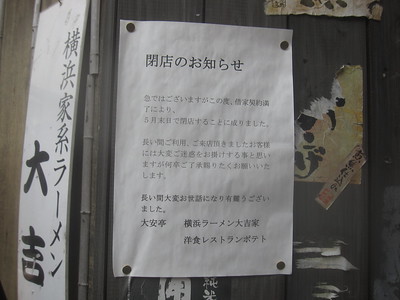 横浜家系ラーメン
大吉
閉店のお知らせ
急ではございますがこの度、借家契約満
了により、
5月末日で閉店することに成りました。
長い間ご利用、ご来店頂きましたお客様
には大変ご迷惑をお掛けする事と思い
ますが何卒ご了承賜りたくお願いいた
します。
長い間大変お世話になり有難うござい
ました。
大安亭 横浜ラーメン大吉家
洋食レストランポテト